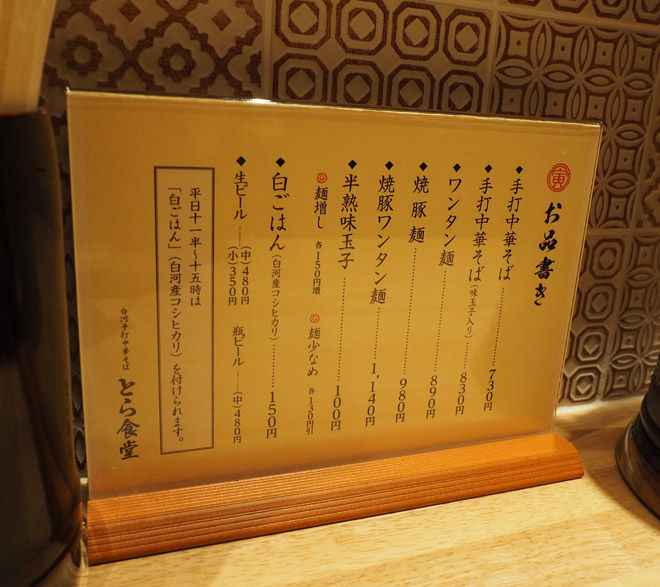 寅
お品書き
◆手打中華そば………730円
◆手打中華そば(味玉子入り)……830円
◆ワンタン麺………890円
◆焼豚麺………980円
◆焼豚ワンタン麺……1,140円
◆半熟味玉子………100円
麺増し 各150円増 麺少なめ 各130円引
◆白ごはん(白河産コシヒカリ)……150円
◆生ビール……(中)480円 (小)350円 瓶ビール……(中)480円
平日十一半〜十五時は
「白ごはん」(白河産コシヒカリ)を付けられます。
白河手打中華そば とら食堂